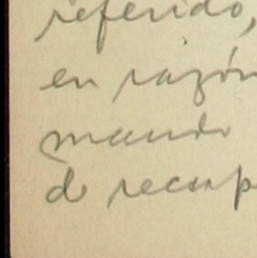 referido,
en razón
mando
d recup